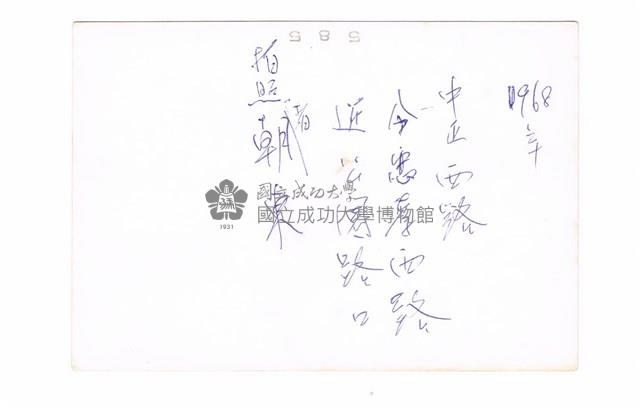 1968年
中正西路
今忠孝西路
近公園路口
拍照者朝東
國立成功大學
國立成功大學博物館
1931